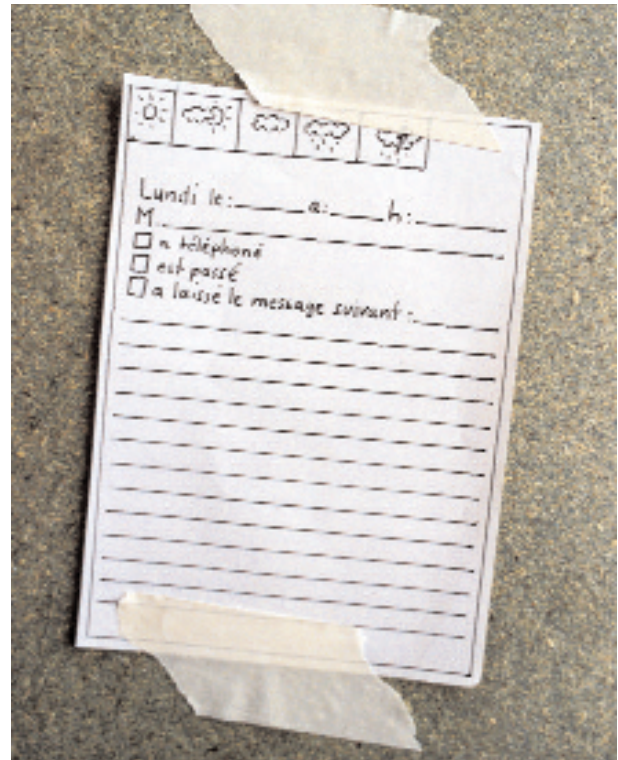 Lundi le:______a:____h:______
M
a téléphoné
est passé
a laissé le message suivant :